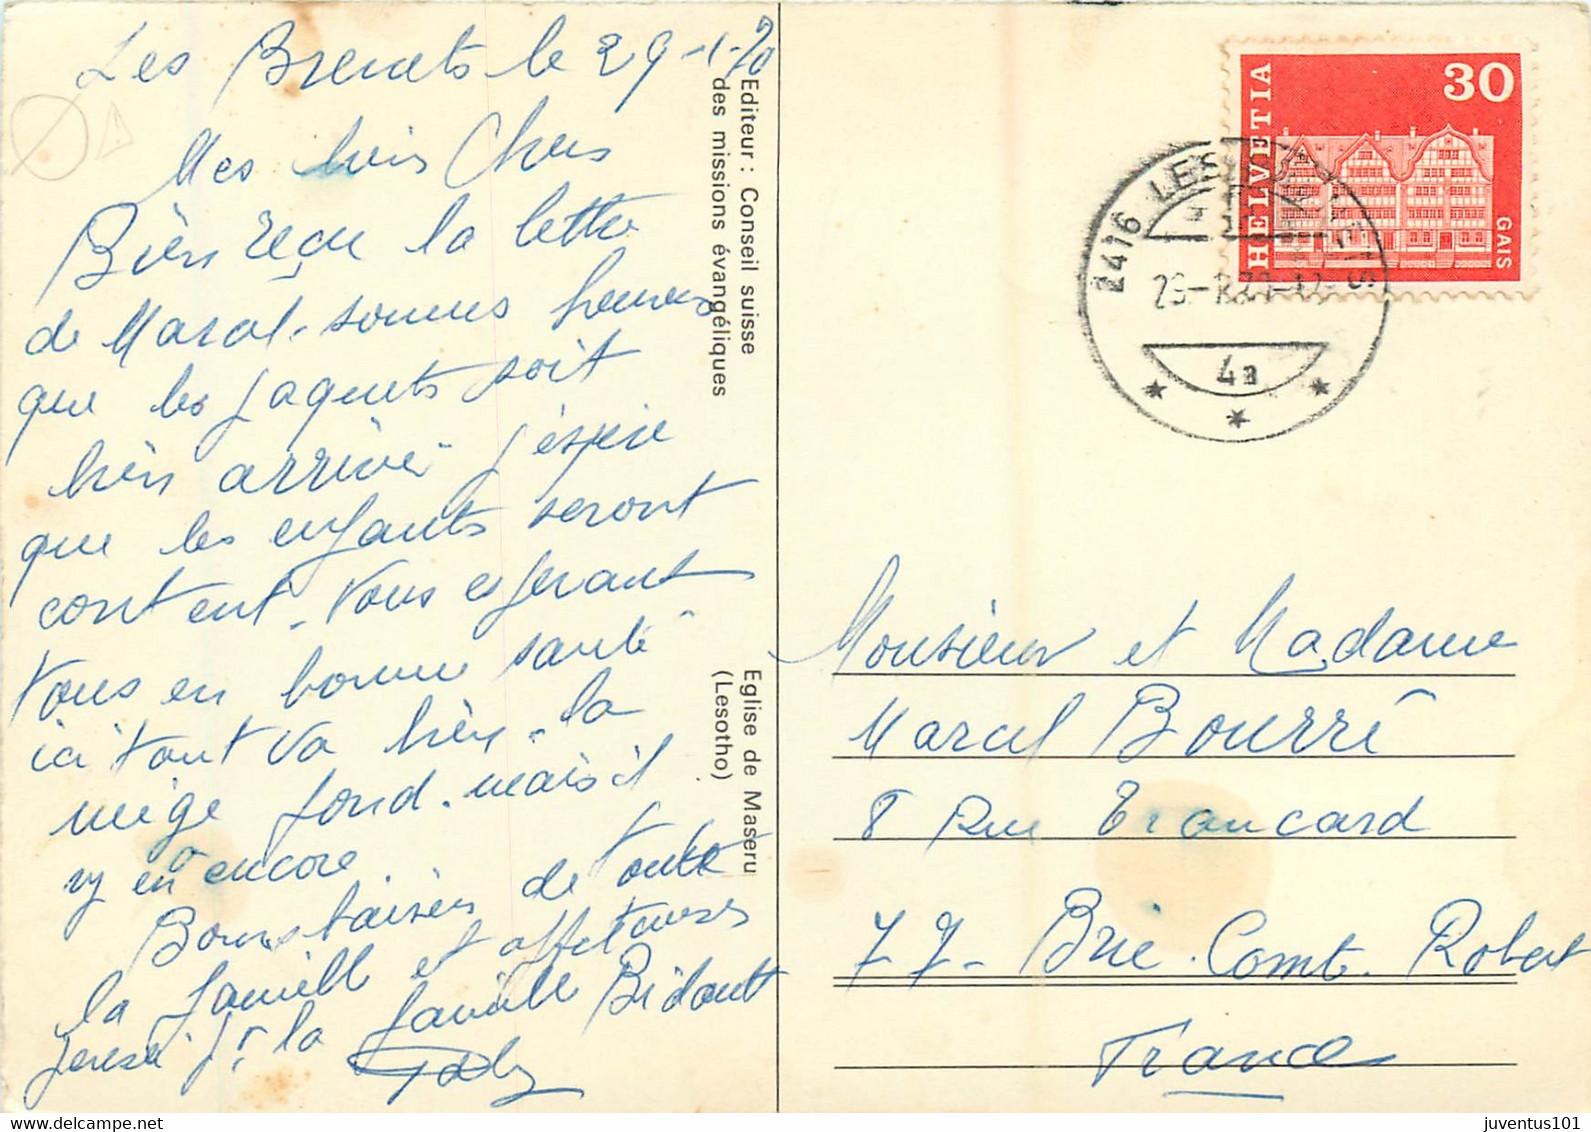 Les Brenets le 29-1-70
Mes trois Chers
Bien reçu la lettre
de Marcel. sommes heureux
que les paquets soit
bien arrivé j'éspère
que les enfants seront
content. Vous esperant
tous en bonne santé
ici tout va bien. la
neige fond. mais il
y en encore
Bons baisers de toute
la famille et affectueuses
pensée pr. la famille Bidault
Editeur: Conseil suisse
des missions évangéliques
Eglise de Maseru
(Lesotho)
HELVETIA
30
GAIS
2416 LES BRENETS
4a
Monsieur et Madame
Marcel Bourré
8 Rue Trancard
77- Brie. Comt. Robert
France
juventus101